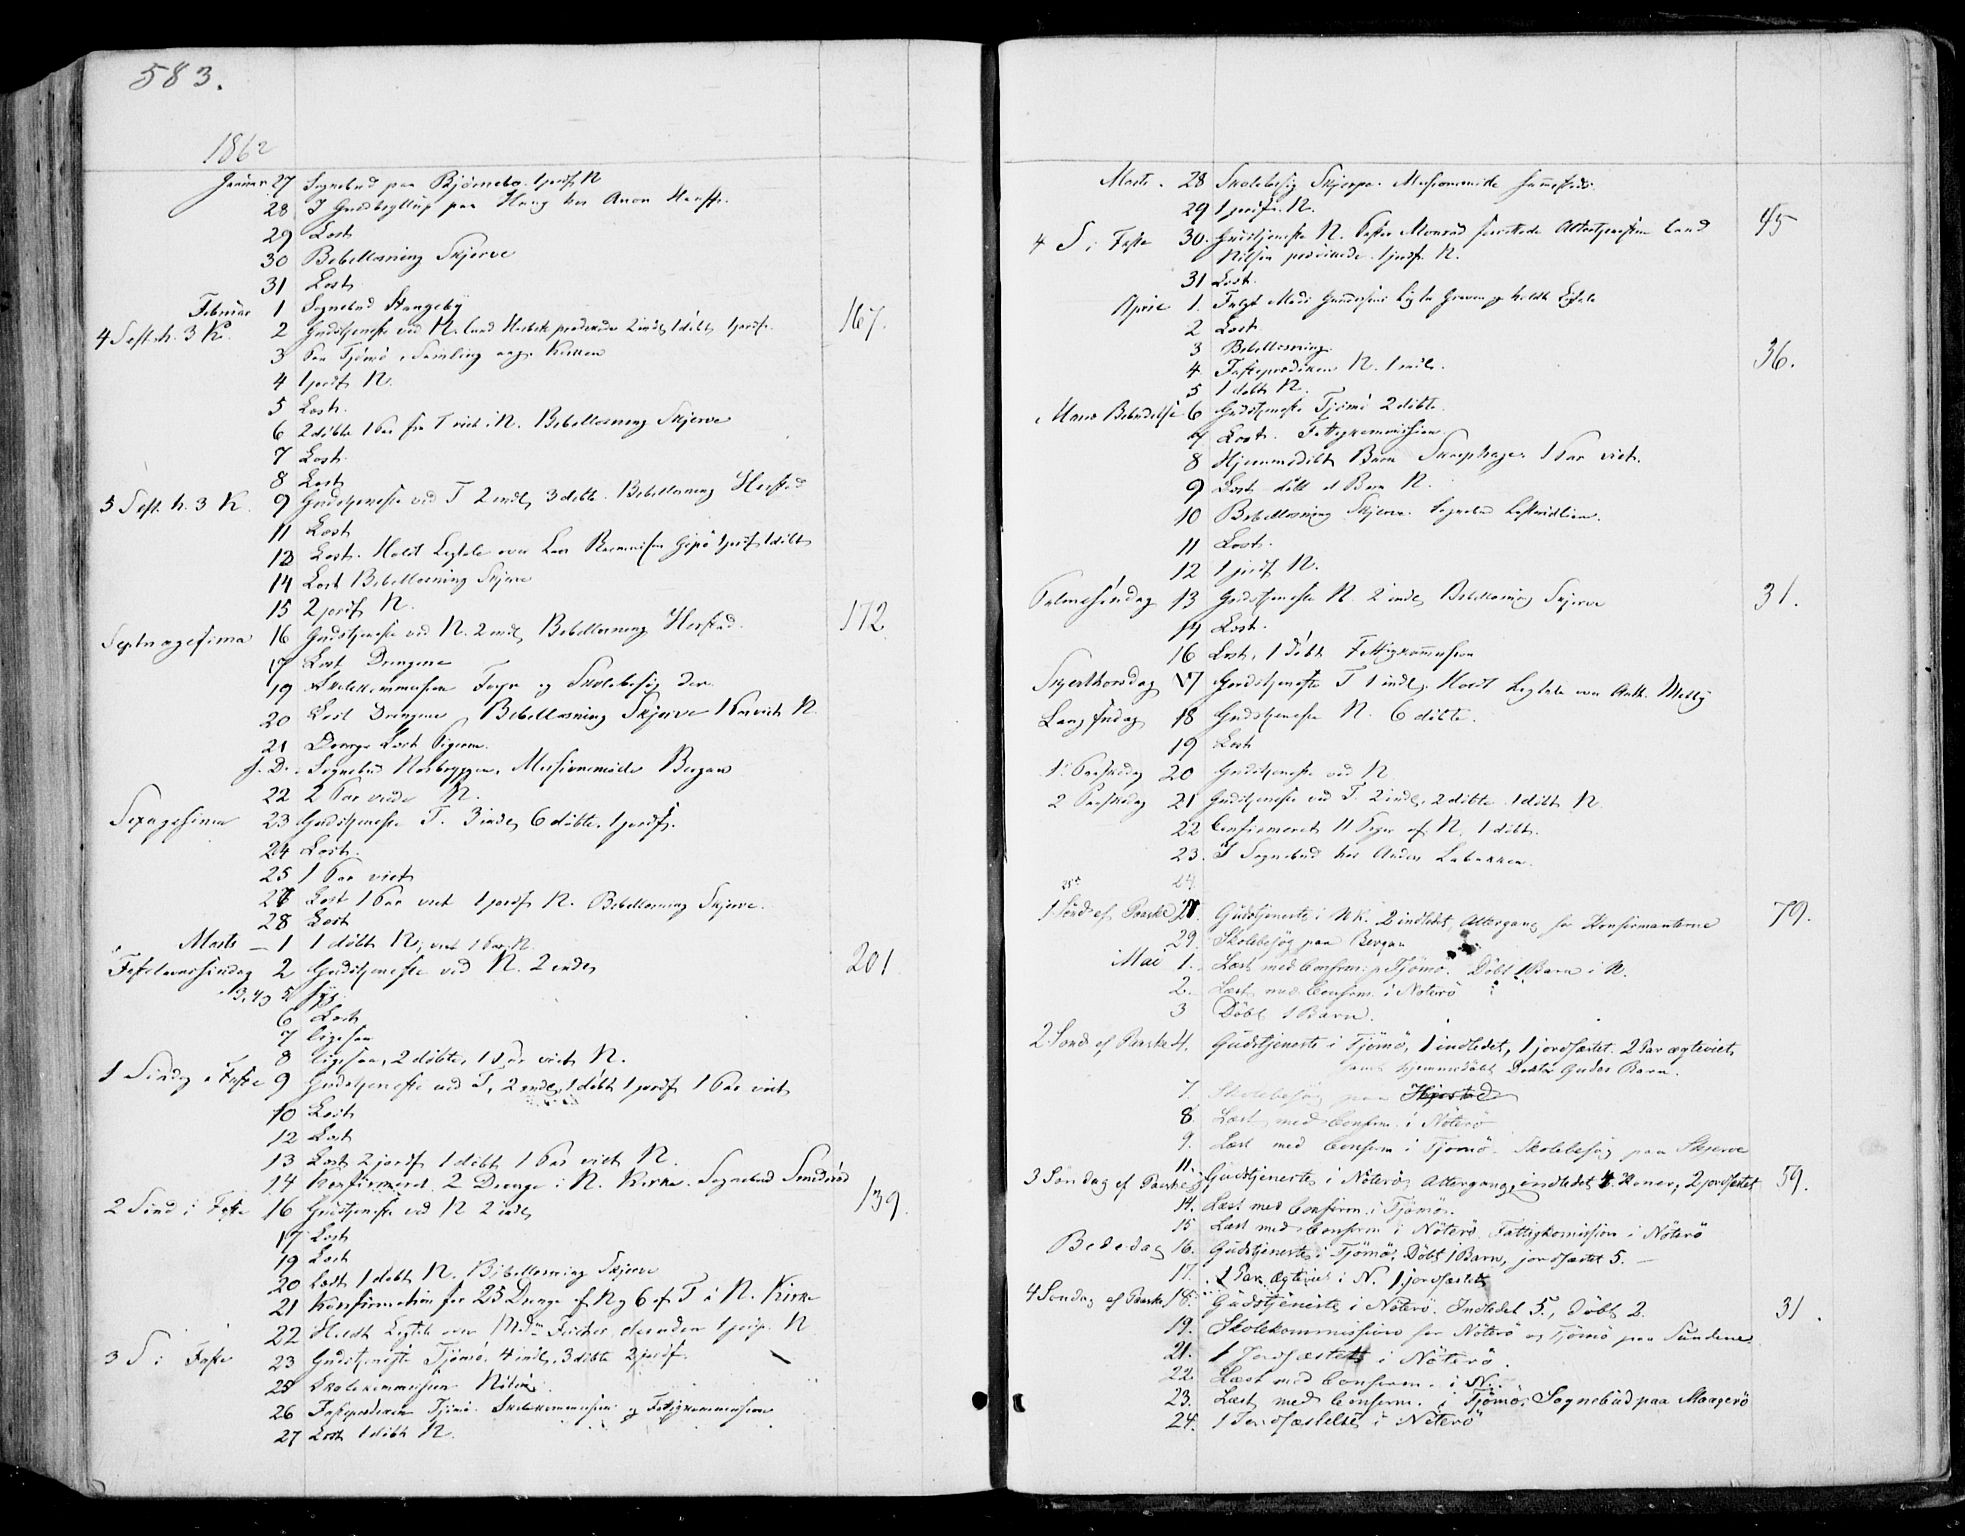 583.
1862
Januar 27 Sognebud paa Bjørnebo. 1 jordf. N
28 I Guldbryllup paa Haug hos Anon
29 Læst
30 Bibellæsning Skjerve
31 Læst
Februar 1 Sognebud Stangeby
4 S. eft. h. 3 K. 2 Gudstjeneste ved N. Cand. prædikede 2 indl. 1 døbt 1 jordf. 167.
3 Paa Tjömö, Samling ang. Kirken
4 1 jordf. N.
5 Læst.
6 2 döbte 1 Par fra T viet i N. Bibellæsning Skjerve
7 Læst.
8 Læst
5 S. eft. h. 3 K. 9 Gudstjeneste ved T 2 indl. 3 döbte. Bibellæsning Herstad
11 Læst
12 Læst. Holdt Ligtale over Lars Rasmussen Gipö 1 jordf. 1 döbt
14 Læst Bibellæsning Skjerve
15 2 jordf. N.
Septuagesima 16 Gudstjeneste ved N. 2 indl. Bibellæsning Herstad. 172
17 Læst Drengene
19 Skolekommission og Skolebesøg
20 Læst Drengene, Bibellæsning Skjerve 1 Par viet N.
21 Læst Pigerne.
s. D. Sognebud Næsbryggen. Missionsmøde Bergan
22 2 Par viede N.
Sexagesima 23 Gudstjeneste T. 3 indl. 6 döbte. 1 jordf.
24 Læst.
25 1 Par viet
Læst 1 Par viet 1 jordf. N. Bibellæsning Skjerve.
28 Læst
Marts — 1 1 döbt N, viet 1 Par N.
Fastelavnssöndag 2 Gudstjeneste ved N. 2 indl. 201
3, 4 og 5 syg
6 Læst
7 ligesaa
8 ligesaa, 2 döbte, 1 Par viet N.
1 Söndag i Faste 9 Gudstjeneste ved T, 2 indl. 1 döbt 1 jordf. 1 Par viet
10 Læst
12 Læst
13 Læst 2 jordf. 1 döbt 1 Par viet N.
14 Konfirmeret 2 Drenge i N. Kirke. Sognebud Smidsröd
2 Sönd i Faste 16 Gudstjeneste ved N 2 indl. 139.
17 Læst
19 Læst
20 Læst 1 döbt N. Bibellæsning Skjerve
21 Konfirmation for 25 Drenge af N og 6 af T i N. Kirke
22 Holdt Ligtale over Fischer, desuden 1 jordf. N
3 S. i Faste 23 Gudstjeneste Tjömö. 4 indl. 3 döbte 2 jordf.
25 Skolekommission Nöterö
26 Fasteprædiken Tjömö. Skolekommission og Fattigkommission
27 Læst 1 döbt N.
Marts. 28 Skolebesøg Skjerpe. Missionsmøde
29 1 jordf. N.
4 S. i Faste 30. Gudstjeneste N. Pastor Monrad forrettede Altertjenesten Cand 45
Nilsen prædikede. 1 jordf. N.
31 Læst.
April 1. Fulgt Mad. Gundersens Lig til Graven og holdt Ligtale
2 Læst.
3 Bibellæsning.
4. Fasteprædiken N. 1 indl. 36.
5 1 döbt N.
Mariæ Bebudelse 6 Gudstjeneste Tjömö 2 döbte.
7 Læst. Fattigkommission.
8 Hjemmedöbt Barn 1 Par viet.
9 Læst döbt et Barn N.
10 Bibellæsning Skjerve. Sognebud
11 Læst.
12 1 jordf. N.
Palmesöndag 13 Gudstjeneste N. 2 indl. Bibellæsning Skjerve 31.
14 Læst.
16 Læst, 1 döbt Fattigkommission
Skjerthorsdag 17 Gudstjeneste T 1 indl. Holdt Ligtale over Melby
Langfredag 18 Gudstjeneste N. 6 döbte.
19 Læst
1. Paaskedag 20 Gudstjeneste ved N
2 Paaskedag 21 Gudstjeneste ved T. 2 indl. 2 döbte 1 döbt N.
22 Confirmeret 11 Piger af N, 1 döbt.
23. I Sognebud hos Anders Labakken.
24
1 Sönd ef. Paaske 27. Gudstjeneste i NK. 2 indledet, Altergang for Konfirmanterne 79.
29. Skolebesög paa Bergan
Mai 1. Læst med Confirm. p. Tjömö. Döbt 1 Barn i N.
2. Læst med Confirm. i Nöterö
3 Döbt 1 Barn.
2 Sönd ef Paaske 4. Gudstjeneste i Tjömö, 1 indledet, 1 jordfæstet. 2 Par ægteviet,
samt hjemmedöbt Doktor Gudes Barn.
7. Skolebesög paa Hjerstad
8. Læst med Confirm. i Nöterö
9. Læst med Confirm i Tjömö. Skolebesög paa Skjerve
3 Söndag ef Paaske 11. Gudstjeneste i Nöterö, Altergang, indledet 4 Koner, 2 jordfæstet 59.
14. Læst med Confirm. i Tjömö.
15 Læst med Confirm i Nöterö. Fattigkomission i Nöterö
Bededag 16. Gudstjeneste i Tjömö, Döbt 1 Barn, jordfæstet 5. —
17. 1 Par Ægteviet i N. 1 jordfæstet
4 Söndag ef Paaske 18. Gudstjeneste i Nöterö. Indledet 5., Döbt 2. 31.
19. Skolekommission for Nöterö og Tjömö paa Sundene
21. 1 Jordfæstet i Nöterö.
22. Læst med Confirm. i N.
23. Læst med Confirm. i Tjömö, Sognebud paa Maagerö
24. 1 Jordfæstelse i Nöterö